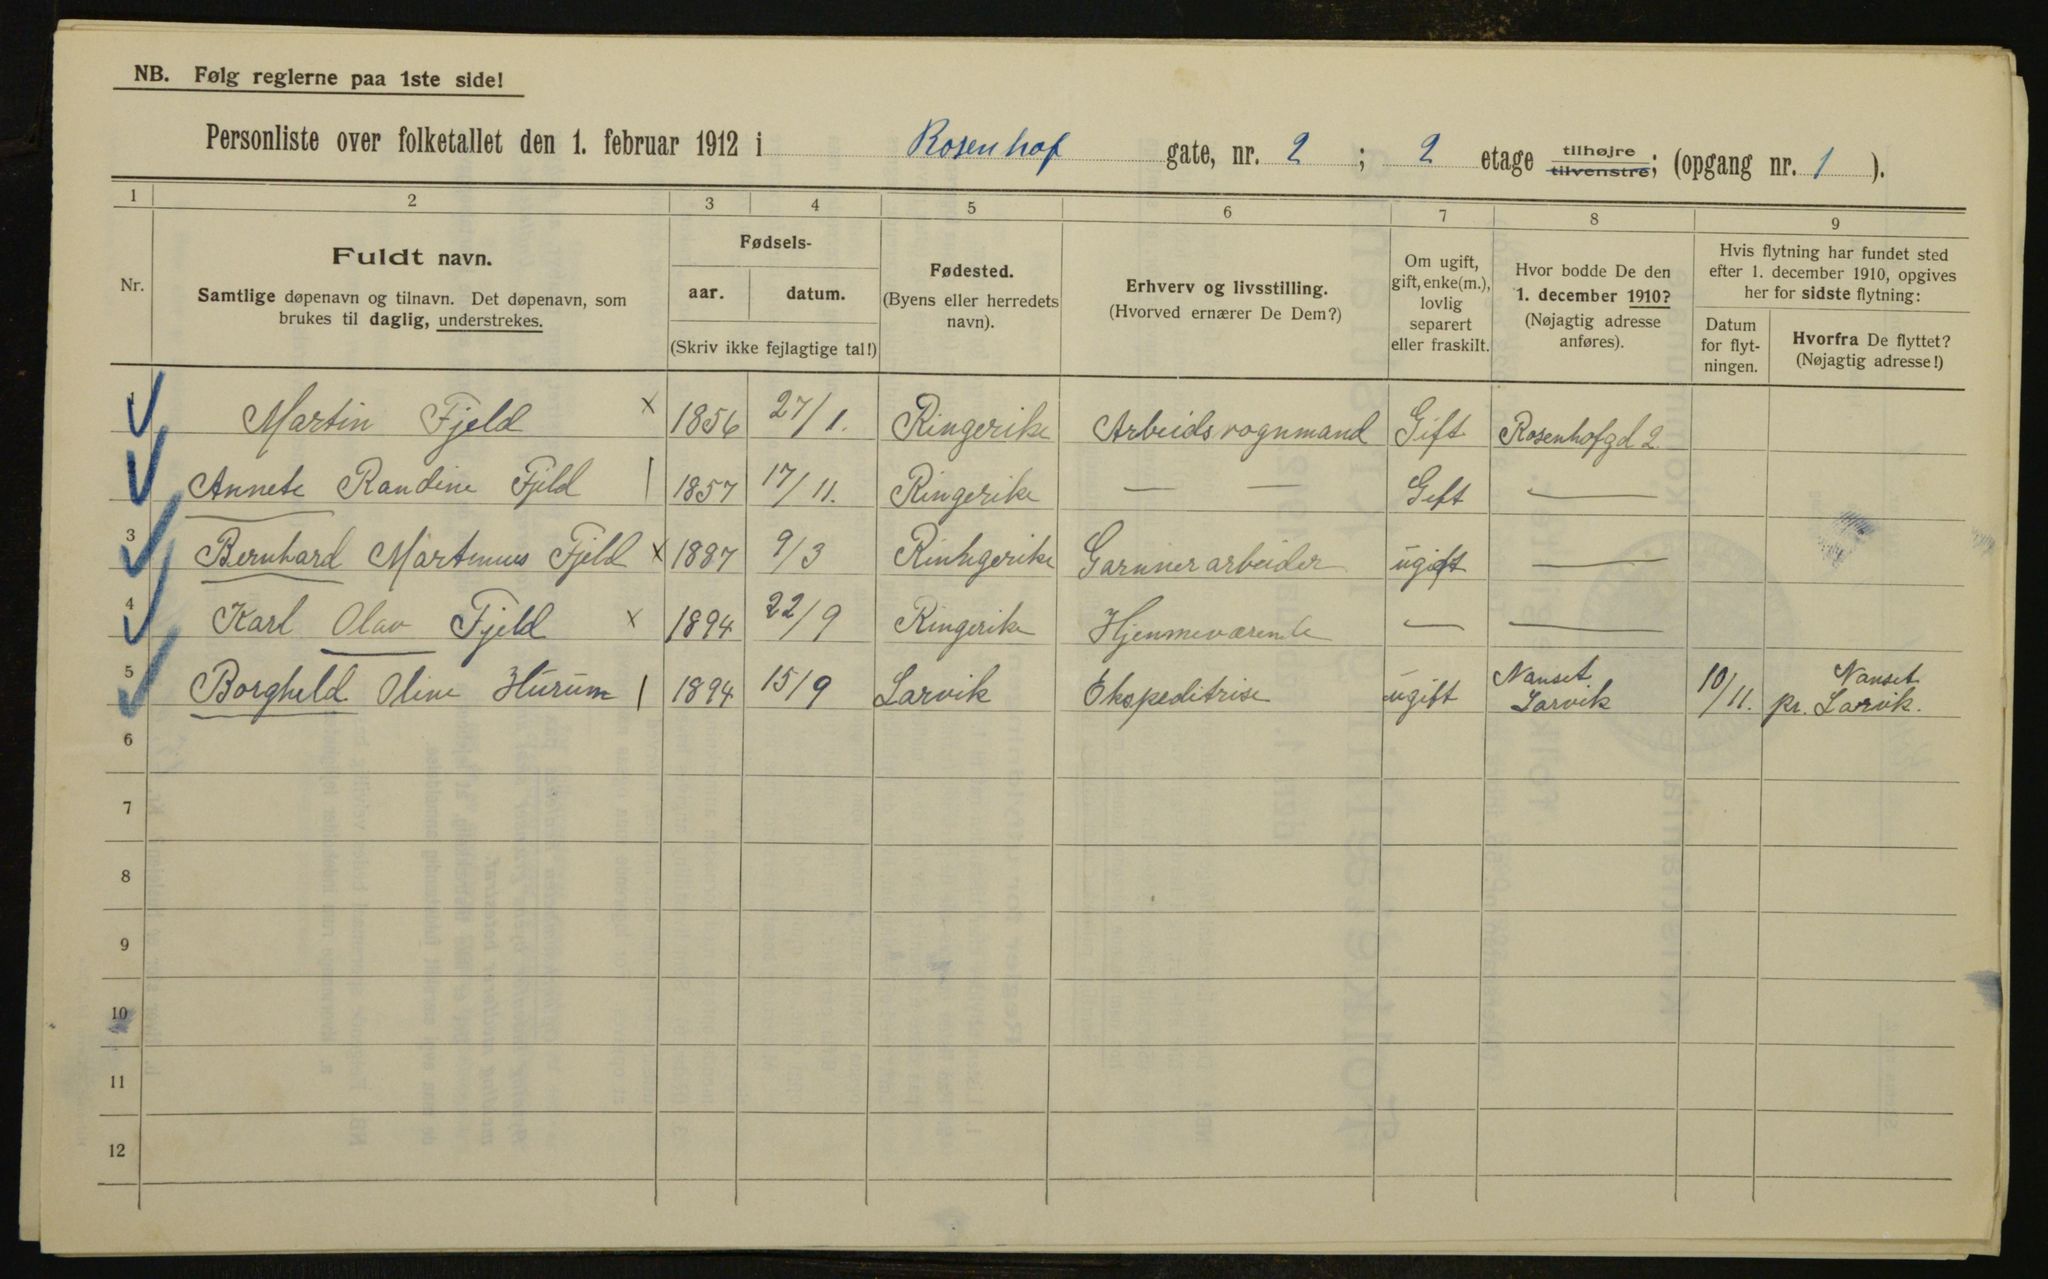 NB. Følg reglerne paa 1ste side!
Personliste over folketallet den 1. februar 1912 i Rosenhof gate, nr. 2 ; 2 etage tilhøjre tilvenstre; (opgang nr. 1 ).
1 2 3 4 5 6 7 8 9
Nr.
Fuldt navn.
Samtlige døpenavn og tilnavn. Det døpenavn, som
brukes til daglig, understrekes.
Fødsels-
aar. datum.
(Skriv ikke fejlagtige tal!)
Fødested.
(Byens eller herredets
navn).
Erhverv og livsstilling.
(Hvorved ernærer De Dem?)
Om ugift,
gift, enke(m.),
lovlig
separert
eller fraskilt.
Hvor bodde De den
1. december 1910?
(Nøjagtig adresse
anføres).
Hvis flytning har fundet sted
efter 1. december 1910, opgives
her for sidste flytning:
Datum
for flyt-
ningen.
Hvorfra De flyttet?
(Nøjagtig adresse!)
Martin Fjeld x 1856 27/1. Ringerike Arbeidsvognmand Gift Rosenhofgd 2.
Annete Randine Fjeld | 1857 17/11. Ringerike — — Gift —
3 Bernhard Martinius Fjeld x 1887 9/3 Rinhgerike Garnerarbeider ugift —
4 Karl Olav Fjeld x 1894 22/9 Ringerike Hjemmeværende — —
5 Borghild Oline Hurum | 1894 15/9 Larvik Ekspeditrise ugift Nanset Larvik 10/11. Nanset pr. Larvik.
6
7
8
9
10
11
12